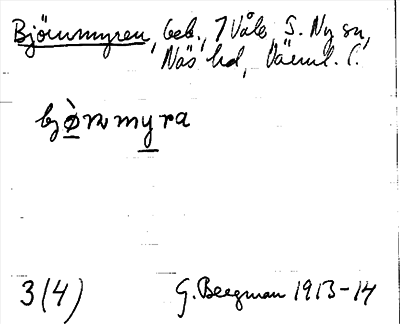 Björnmyren, beb., 7 Våle, S. Ny sn,
Näs hd, Värml. l.
bjònmyra
3(4)
G. Bergman 1913-14